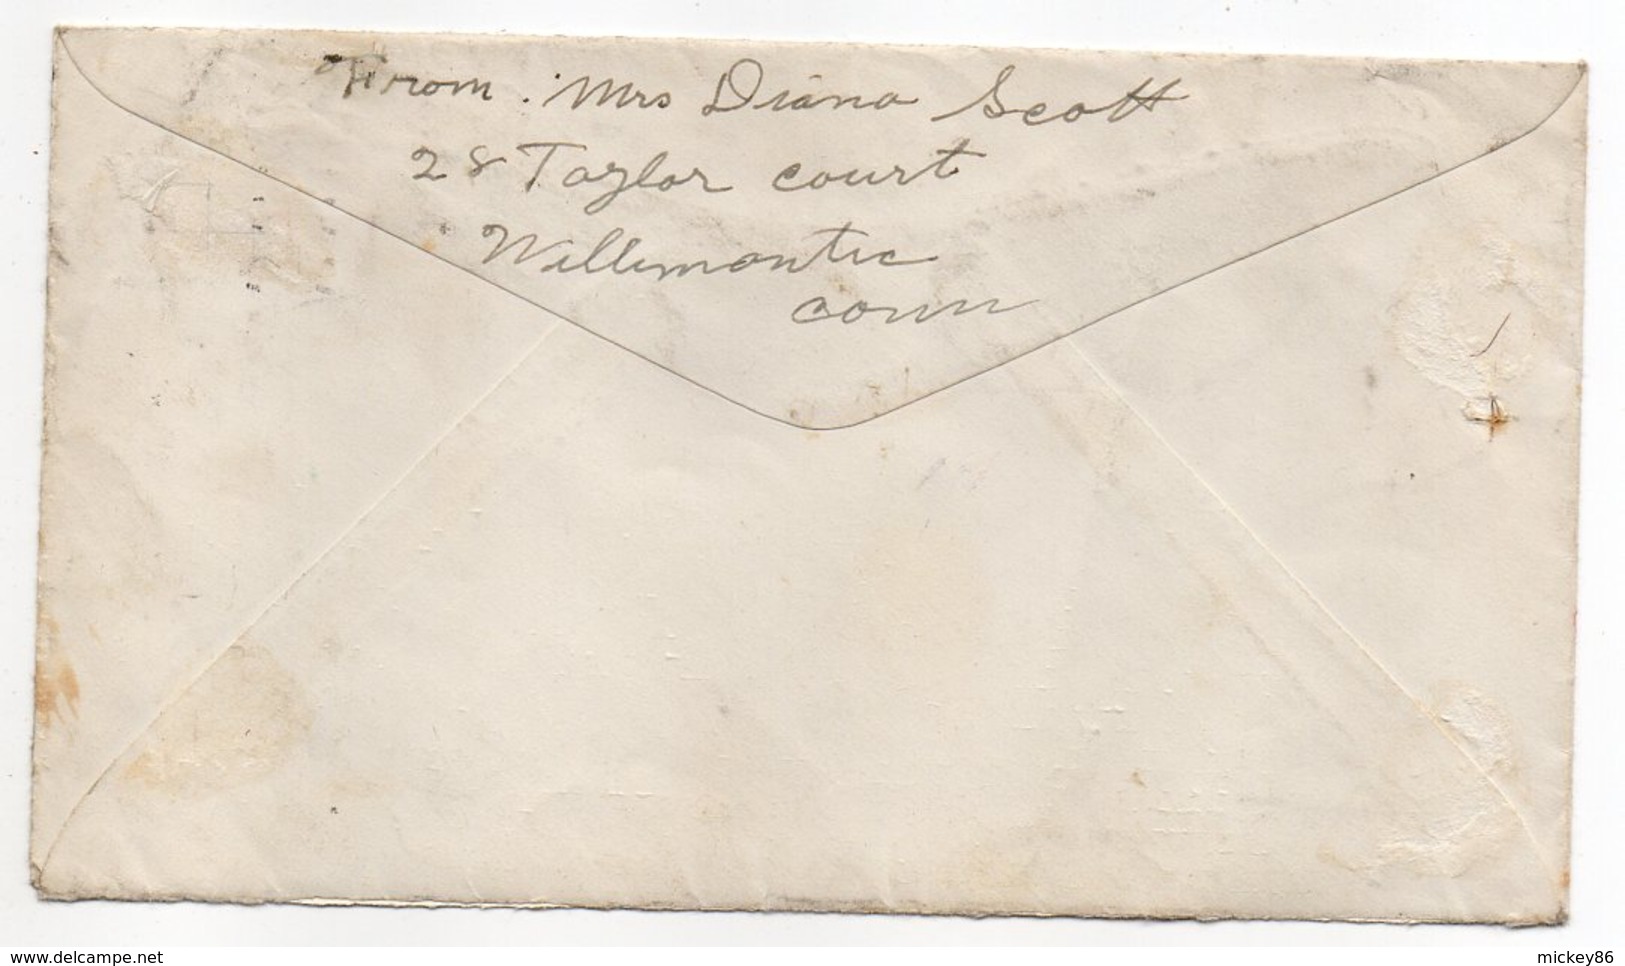 From. Mrs Diana Scott
28 Taylor court
Willimantic
conn
www.delcampe.net
mickey86